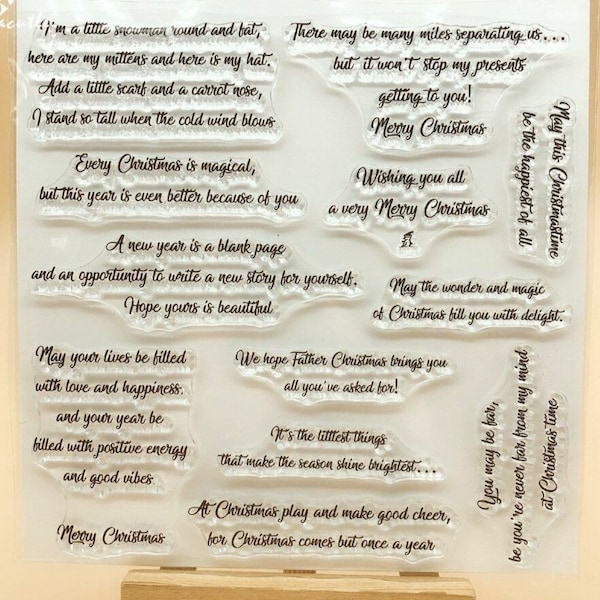 I'm a little snowman round and fat,
here are my mittens and here is my hat.
Add a little scarf and a carrot nose,
I stand so tall when the cold wind blows
There may be many miles separating us...
but it won't stop my presents
getting to you!
Merry Christmas
May this Christmastime
be the happiest of all
Every Christmas is magical,
but this year is even better because of you
Wishing you all
a very Merry Christmas
A new year is a blank page
and an opportunity to write a new story for yourself.
Hope yours is beautiful
May the wonder and magic
of Christmas fill you with delight.
May your lives be filled
with love and happiness.
and your year be
filled with positive energy
and good vibes
Merry Christmas
We hope Father Christmas brings you
all you've asked for!
It's the littlest things
that make the season shine brightest...
At Christmas play and make good cheer,
for Christmas comes but once a year
You may be far,
be you're never far from my mind
at Christmas time